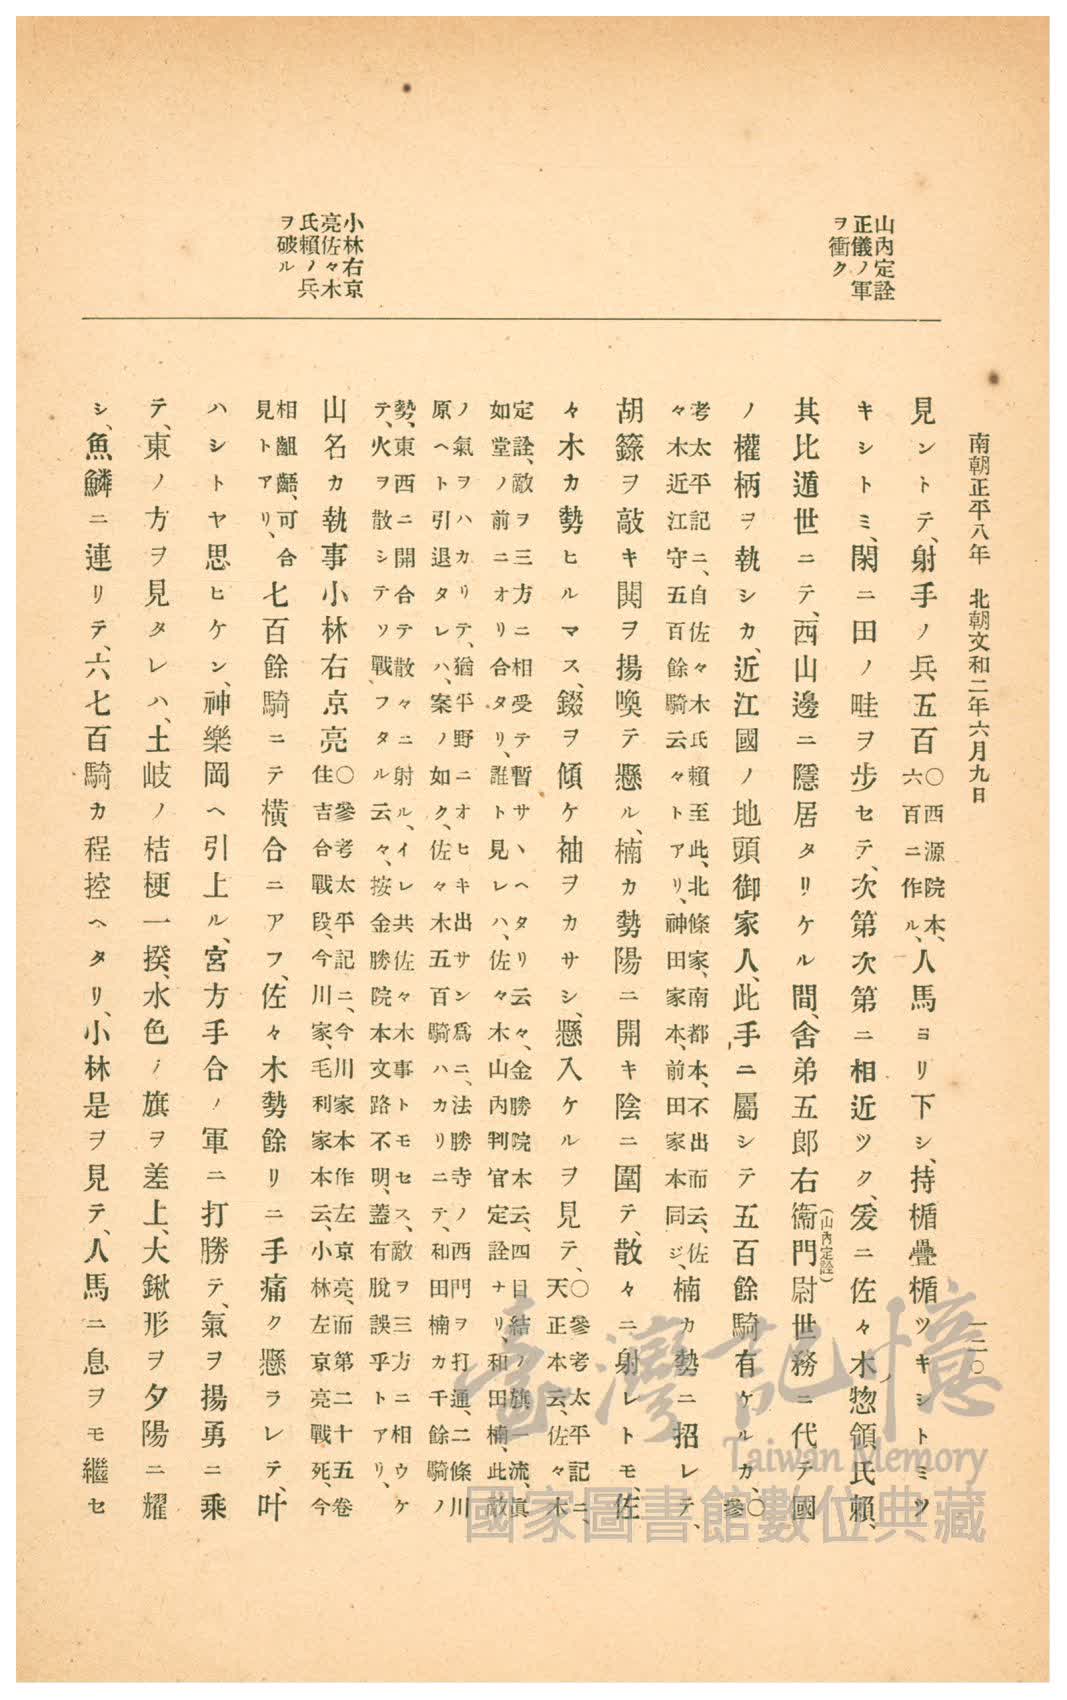 南朝正平八年 北朝文和二年六月九日 一二〇
山內定詮
正儀ノ軍
ヲ衝ク
小林右京
亮佐々木
氏賴ノ兵
ヲ破ル
見ントテ、射手ノ兵五百〇西源院本、六百ニ作ル、人馬ヨリ下シ、持楯疊楯ツキシトミツ
キシトミ、閑ニ田ノ畦ヲ歩セテ、次第次第ニ相近ツク、爰ニ佐々木惣領氏賴、
其比遁世ニテ、西山邊ニ隱居タリケル間、舍弟五郎右衞門尉(山內定詮)世務ニ代テ國
ノ權柄ヲ執シカ、近江國ノ地頭御家人、此手ニ屬シテ五百餘騎有ケルカ、〇參
考太平記ニ、自佐々木氏賴至此、北條家、南都本、不出而云、佐
々木近江守五百餘騎云々トアリ、神田家本、前田家本同ジ、楠カ勢ニ招レテ、
胡籙ヲ敲キ鬨ヲ揚喚テ懸ル、楠カ勢陽ニ開キ陰ニ圍テ、散々ニ射レトモ、佐
々木カ勢ヒルマス、錣ヲ傾ケ袖ヲカサシ、懸入ケルヲ見テ、〇參考太平記ニ、天正本云、佐々木
定詮、敵ヲ三方ニ相受テ暫サヽヘタリ云々、金勝院本云、四目結ノ旗一流、眞
如堂ノ前ニオリ合タリ、誰ト見レハ、佐々木山內判官定詮ナリ、和田楠、此敵
ノ氣ヲハカリテ、猶平野ニオヒキ出サン爲ニ、法勝寺ノ西門ヲ打通、二條川
原ヘト引退タレハ、案ノ如ク、佐々木五百騎ハカリニテ、和田楠カ千餘騎ノ
勢、東西ニ開合テ散々ニ射ル、イレ共佐々木事トモセス、敵ヲ三方ニ相ウケ
テ、火ヲ散シテソ戰フタル云々、按金勝院本文路不明、蓋有脫誤乎トアリ、
山名カ執事小林右京亮〇參考太平記ニ、今川家本作左京亮、而第二十五卷
住吉合戰段、今川家、毛利家本云、小林左京亮戰死、今
相齟齬、可合
見トアリ、七百餘騎ニテ橫合ニアフ、佐々木勢餘リニ手痛ク懸ラレテ、叶
ハシトヤ思ヒケン、神樂岡ヘ引上ル、宮方手合ノ軍ニ打勝テ、氣ヲ揚勇ニ乘
テ、東ノ方ヲ見タレハ、土岐ノ桔梗一揆、水色ノ旗ヲ差上、大鍬形ヲ夕陽ニ耀
シ、魚鱗ニ連リテ、六七百騎カ程控ヘタリ、小林是ヲ見テ、人馬ニ息ヲモ繼セ
臺灣記憶
Taiwan Memory
國家圖書館數位典藏